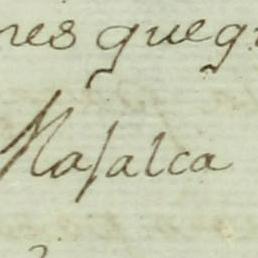 nes que q
Masalca